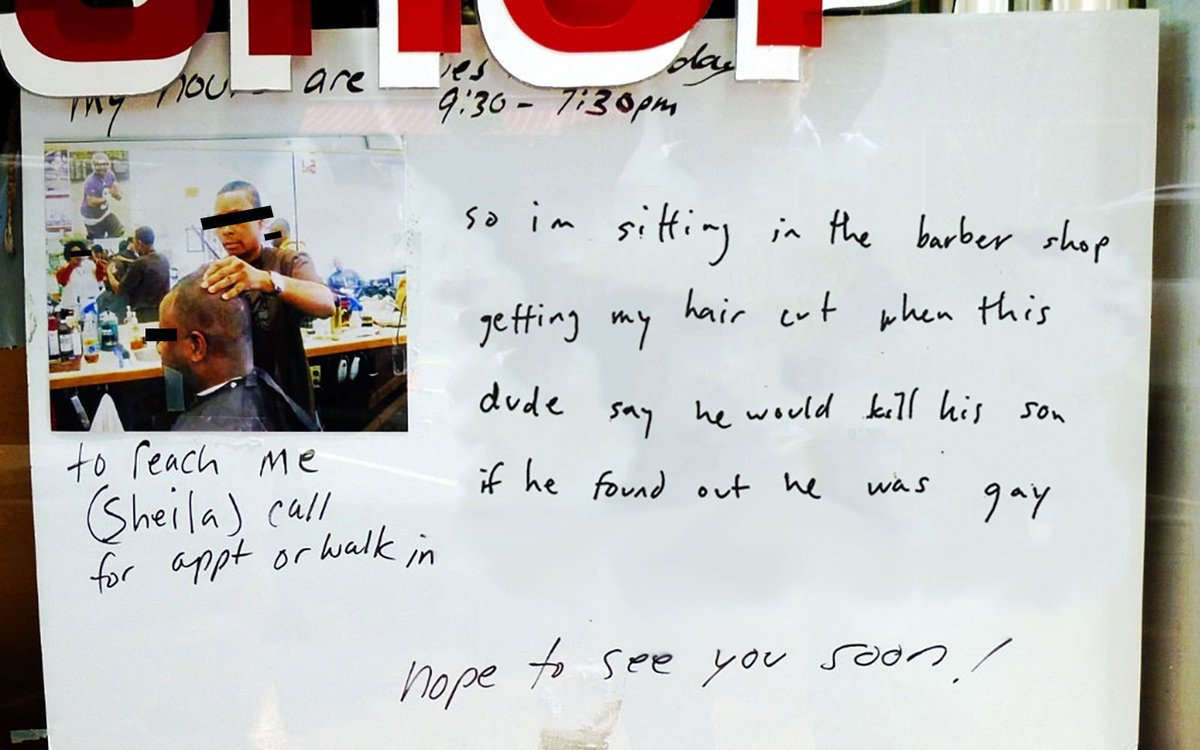 SHOP
my hours are
9:30 - 7:30pm
so im sitting in the barber shop
getting my hair cut when this
dude say he would kill his son
if he found out he was gay
to reach me
(Sheila) call
for appt or walk in
hope to see you soon!